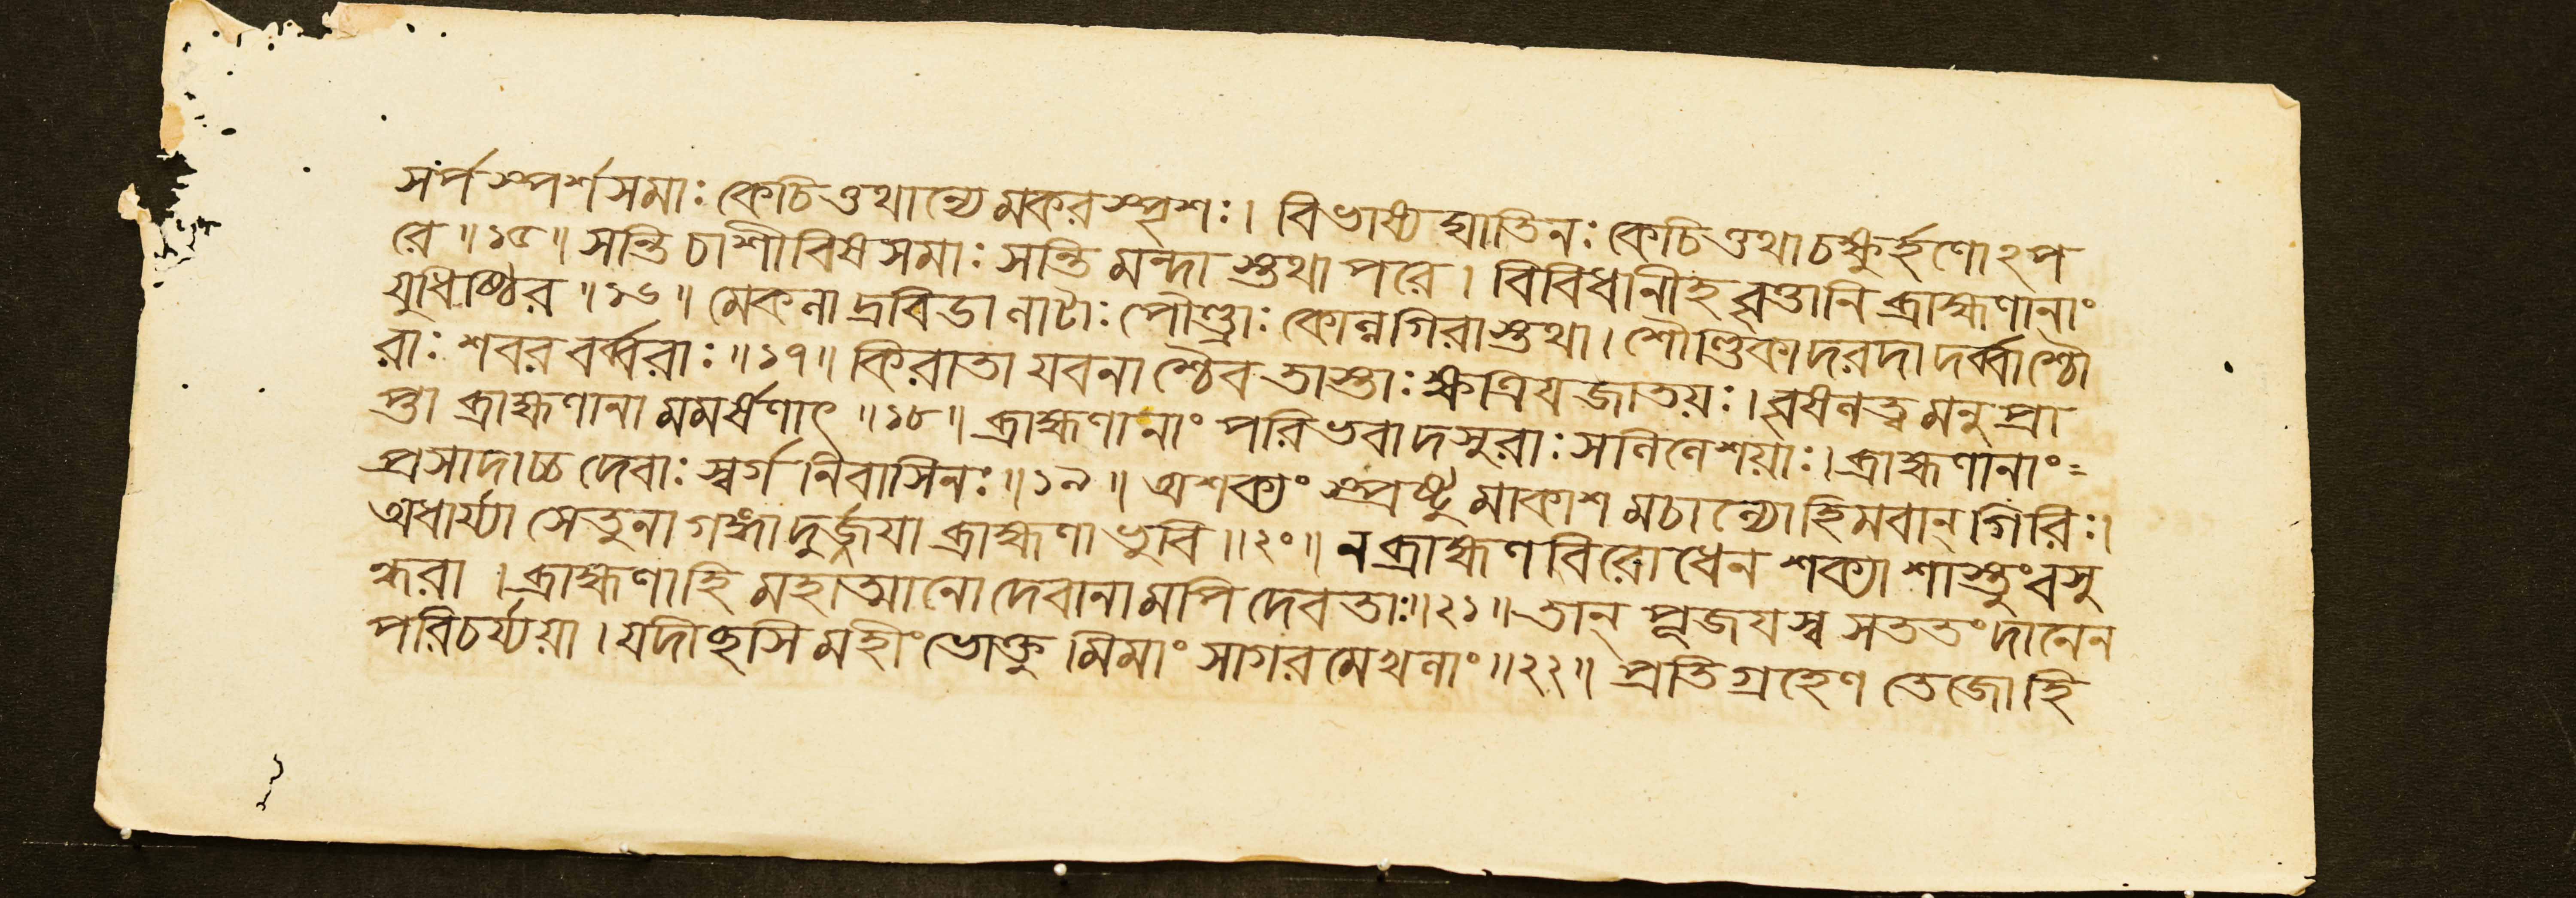 সর্পস্পর্শসমাঃ কেচিত্তথান্যে মকরস্পৃশঃ। বিভাষ্য ঘাতিনঃ কেচিত্তথা চক্ষুর্হণোঽপ
রে॥১৫॥ সন্তি চাশীবিষসমাঃ সন্তি মন্দাস্তথাপরে। বিবিধানীহ বৃত্তানি ব্রাহ্মণানাং
যুধিষ্ঠির॥১৬॥ মেকলা দ্রবিডা লাটাঃ পৌণ্ড্রাঃ কোন্নগিরাস্তথা। শৌণ্ডিকা দরদা দর্ব্বাশ্চৌ
রাঃ শবরবর্ব্বরাঃ॥১৭॥ কিরাতা যবনাশ্চৈব তাস্তাঃ ক্ষত্রিযজাতয়ঃ। বৃষলত্বমনুপ্রা
প্তা ব্রাহ্মণানামমর্ষণাৎ॥১৮॥ ব্রাহ্মণানাং পরিভবাদসুরাঃ সলিলেশয়াঃ। ব্রাহ্মণানাং=
প্রসাদাচ্চ দেবাঃ স্বর্গনিবাসিনঃ॥১৯॥ অশক্যং স্প্রষ্টুমাকাশমচাল্যো হিমবান্ গিরিঃ।
অধার্য্যা সেতুনা গঙ্গা দুর্জ্জযা ব্রাহ্মণা ভুবি॥২০॥ ন ব্রাহ্মণবিরোধেন শক্যা শাস্তুং বসু
ন্ধরা। ব্রাহ্মণা হি মহাত্মানো দেবানামপি দেবতাঃ॥২১॥ তান্ পূজযস্ব সততং দানেন
পরিচর্য্যয়া। যদীচ্ছসি মহীং ভোক্তুমিমাং সাগরমেখলাং॥২২॥ প্রতিগ্রহেণ তেজো হি